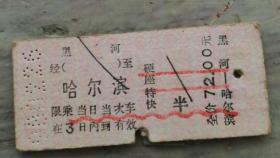 黑 河
经( )至
哈尔滨
硬座特快
半
限乘当日当次车
在3日内到有效
全价7200元
黑河—哈尔滨